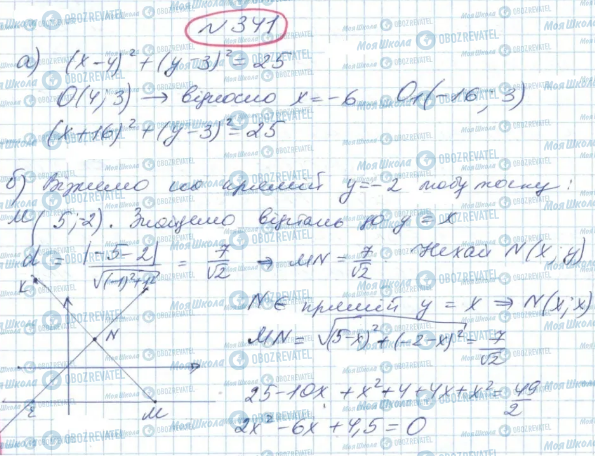 N 341
а) (x-4)² + (y-3)² = 25
O(4; 3) → відносно x = -6 O₁(-16; 3)
(x+16)² + (y-3)² = 25
б) Візьмемо на прямій y = -2 любу точку:
M(5; -2). Знайдемо відстань до y = x
d = |-5-2| / √((-1)²+1²) = 7/√2 ⇒ MN = 7/√2 Нехай N(x; y)
N ∈ прямій y = x ⇒ N(x; x)
MN = √((5-x)² + (-2-x)²) = 7/√2
25 - 10x + x² + 4 + 4x + x² = 49/2
2x² - 6x + 4,5 = 0
K
N
M